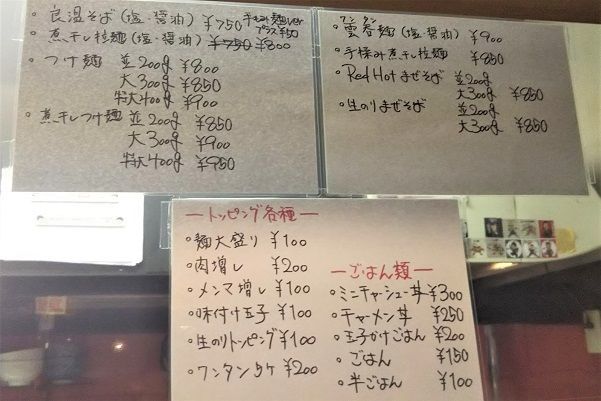 ・良温そば(塩・醤油) ¥750 手もみ麺ver プラス¥50
・煮干し拉麺(塩・醤油) ¥750 ¥800
・つけ麺 並200g ¥800
大300g ¥850
特大400g ¥900
・煮干しつけ麺 並200g ¥850
大300g ¥900
特大400g ¥950
ワンタン
・雲呑麺(塩・醤油) ¥900
・手揉み煮干し拉麺 ¥850
・Red Hot まぜそば 並200g
大300g ¥850
・生のりまぜそば 並200g
大300g ¥850
ートッピング各種ー
・麺大盛り ¥100
・肉増し ¥200
・メンマ増し ¥100
・味付け玉子 ¥100
・生のりトッピング ¥100
・ワンタン5ケ ¥200
ーごはん類ー
・ミニチャーシュー丼 ¥300
・チャーメン丼 ¥250
・玉子かけごはん ¥200
・ごはん ¥150
・半ごはん ¥100